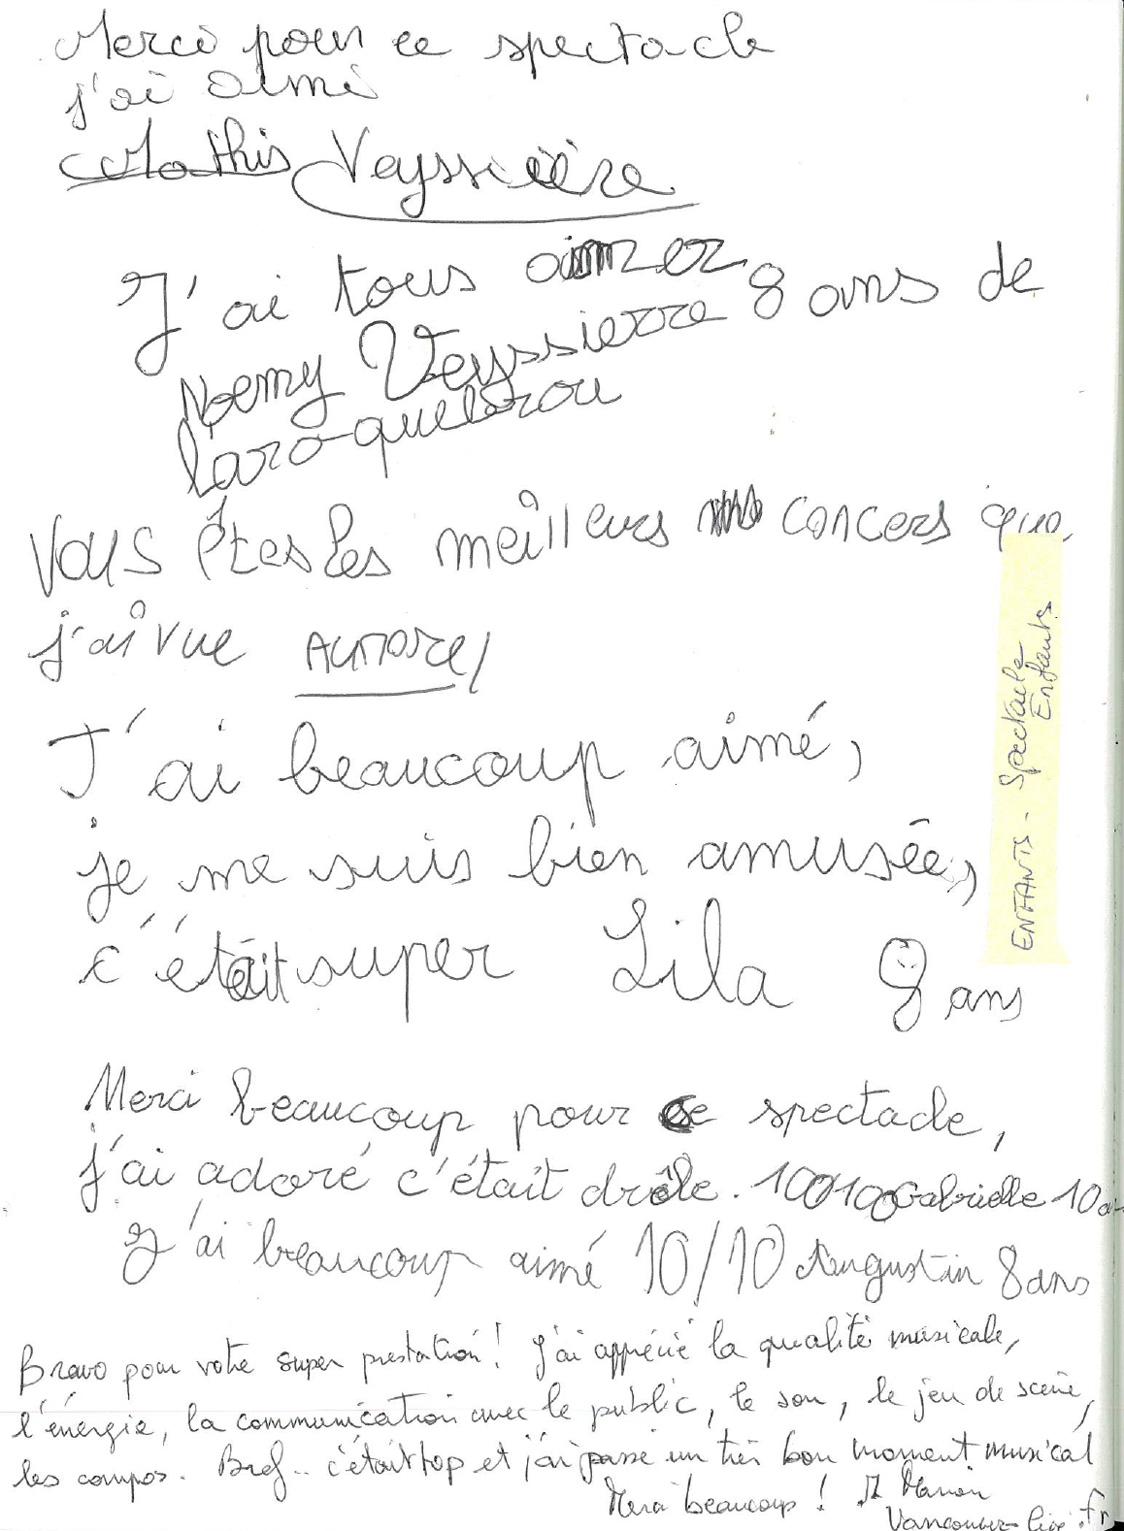 Merci pour ce spectacle
j'ai aimé
Mathis Veyssière
J'ai tous aimer
Noemy Veyssierre 8 ans de
laroquebrou
Vous êtes les meilleurs concers que
j'ai vue Aurore
J'ai beaucoup aimé,
je me suis bien amusée,
c'était super Lila 8 ans
ENFANTS - Spectacle
Enfants
Merci beaucoup pour ce spectacle,
j'ai adoré c'était drôle. Gabrielle 10
J'ai beaucoup aimé 10/10 Augustin 8 ans
Bravo pour votre super prestation! J'ai apprécié la qualité musicale,
l'énergie, la communication avec le public, le son, le jeu de scène,
les compos. Bref.. c'était top et j'ai passé un très bon moment musical
Merci beaucoup ! Marion